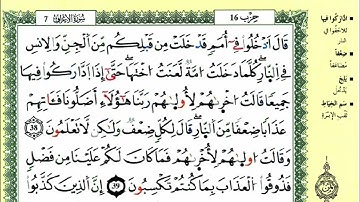 حزب 16
سورة الأعراف 7
قَالَ ادْخُلُوا فِي أُمَمٍ قَدْ خَلَتْ مِن قَبْلِكُم مِّنَ الْجِنِّ وَالْإِنسِ
فِي النَّارِ كُلَّمَا دَخَلَتْ أُمَّةٌ لَّعَنَتْ أُخْتَهَا حَتَّىٰ إِذَا ادَّارَكُوا فِيهَا
جَمِيعًا قَالَتْ أُخْرَاهُمْ لِأُولَاهُمْ رَبَّنَا هَٰؤُلَاءِ أَضَلُّونَا فَآتِهِمْ
عَذَابًا ضِعْفًا مِّنَ النَّارِ قَالَ لِكُلٍّ ضِعْفٌ وَلَٰكِن لَّا تَعْلَمُونَ 38
وَقَالَتْ أُولَاهُمْ لِأُخْرَاهُمْ فَمَا كَانَ لَكُمْ عَلَيْنَا مِن فَضْلٍ
فَذُوقُوا الْعَذَابَ بِمَا كُنتُمْ تَكْسِبُونَ 39 إِنَّ الَّذِينَ كَذَّبُوا
ادّاركوا فيها
تلاحقوا في
النار
ضعفا
مضاعفا
يلج
يدخل
سم الخياط
ثقب الإبرة